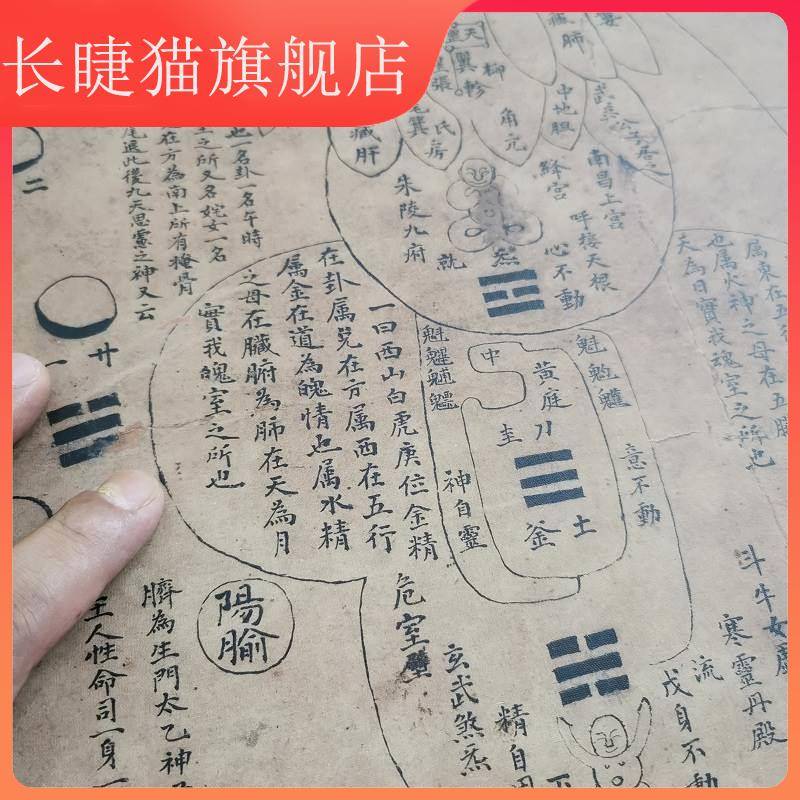 长睫猫旗舰店
天
翼
柳
軫
張
箕
氐
房
角亢
中地胆
藏肝
絳宮
南昌上宮
呼接天根
朱陵九府
就
炁
心不動
也一名卦一名午時
之所又名姹女一名
在方為南上所有掩骨
尾還此復九天思靈之神又云
二
廿
一
一曰西山白虎庚位金精
在卦属兌在方属西在五行
属金在道為魄情也属水精
之母在臟腑為肺在天為月
實我魄室之所也
属東在五行
也属火神之母在五臟
天為日實我魂室之所也
中
黄庭
圭
刀
土
釜
神自靈
意不動
陽腧
危室壁
玄武煞炁
斗牛女虛
寒靈丹殿
流
戊身不動
臍為生門太乙神
主人性命司一身一